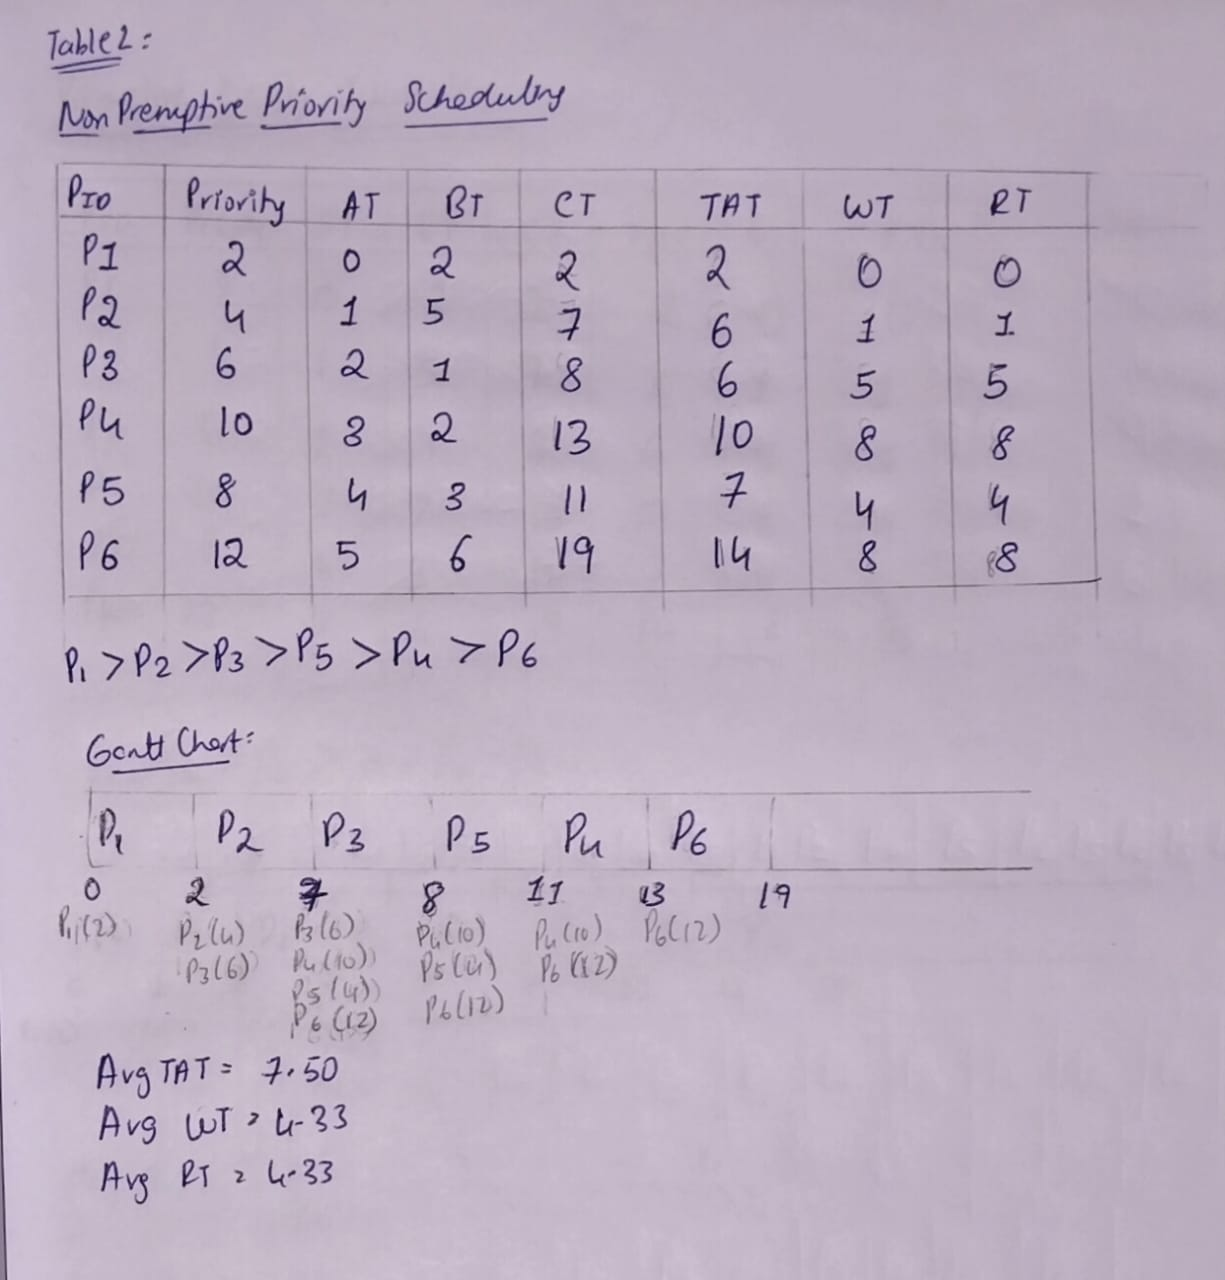 Table 2:
Non Premptive Priority Scheduling
PID Priority AT BT CT TAT WT RT
P1 2 0 2 2 2 0 0
P2 4 1 5 7 6 1 1
P3 6 2 1 8 6 5 5
P4 10 3 2 13 10 8 8
P5 8 4 3 11 7 4 4
P6 12 5 6 19 14 8 8
P1 > P2 > P3 > P5 > P4 > P6
Gantt Chart:
P1 P2 P3 P5 P4 P6
0 2 7 8 11 13 19
P1(2) P2(4) P3(6) P4(10) P4(10) P6(12)
P3(6) P4(10) P5(4) P6(12)
P5(4) P6(12)
P6(12)
Avg TAT = 7.50
Avg WT = 4.33
Avg RT = 4.33